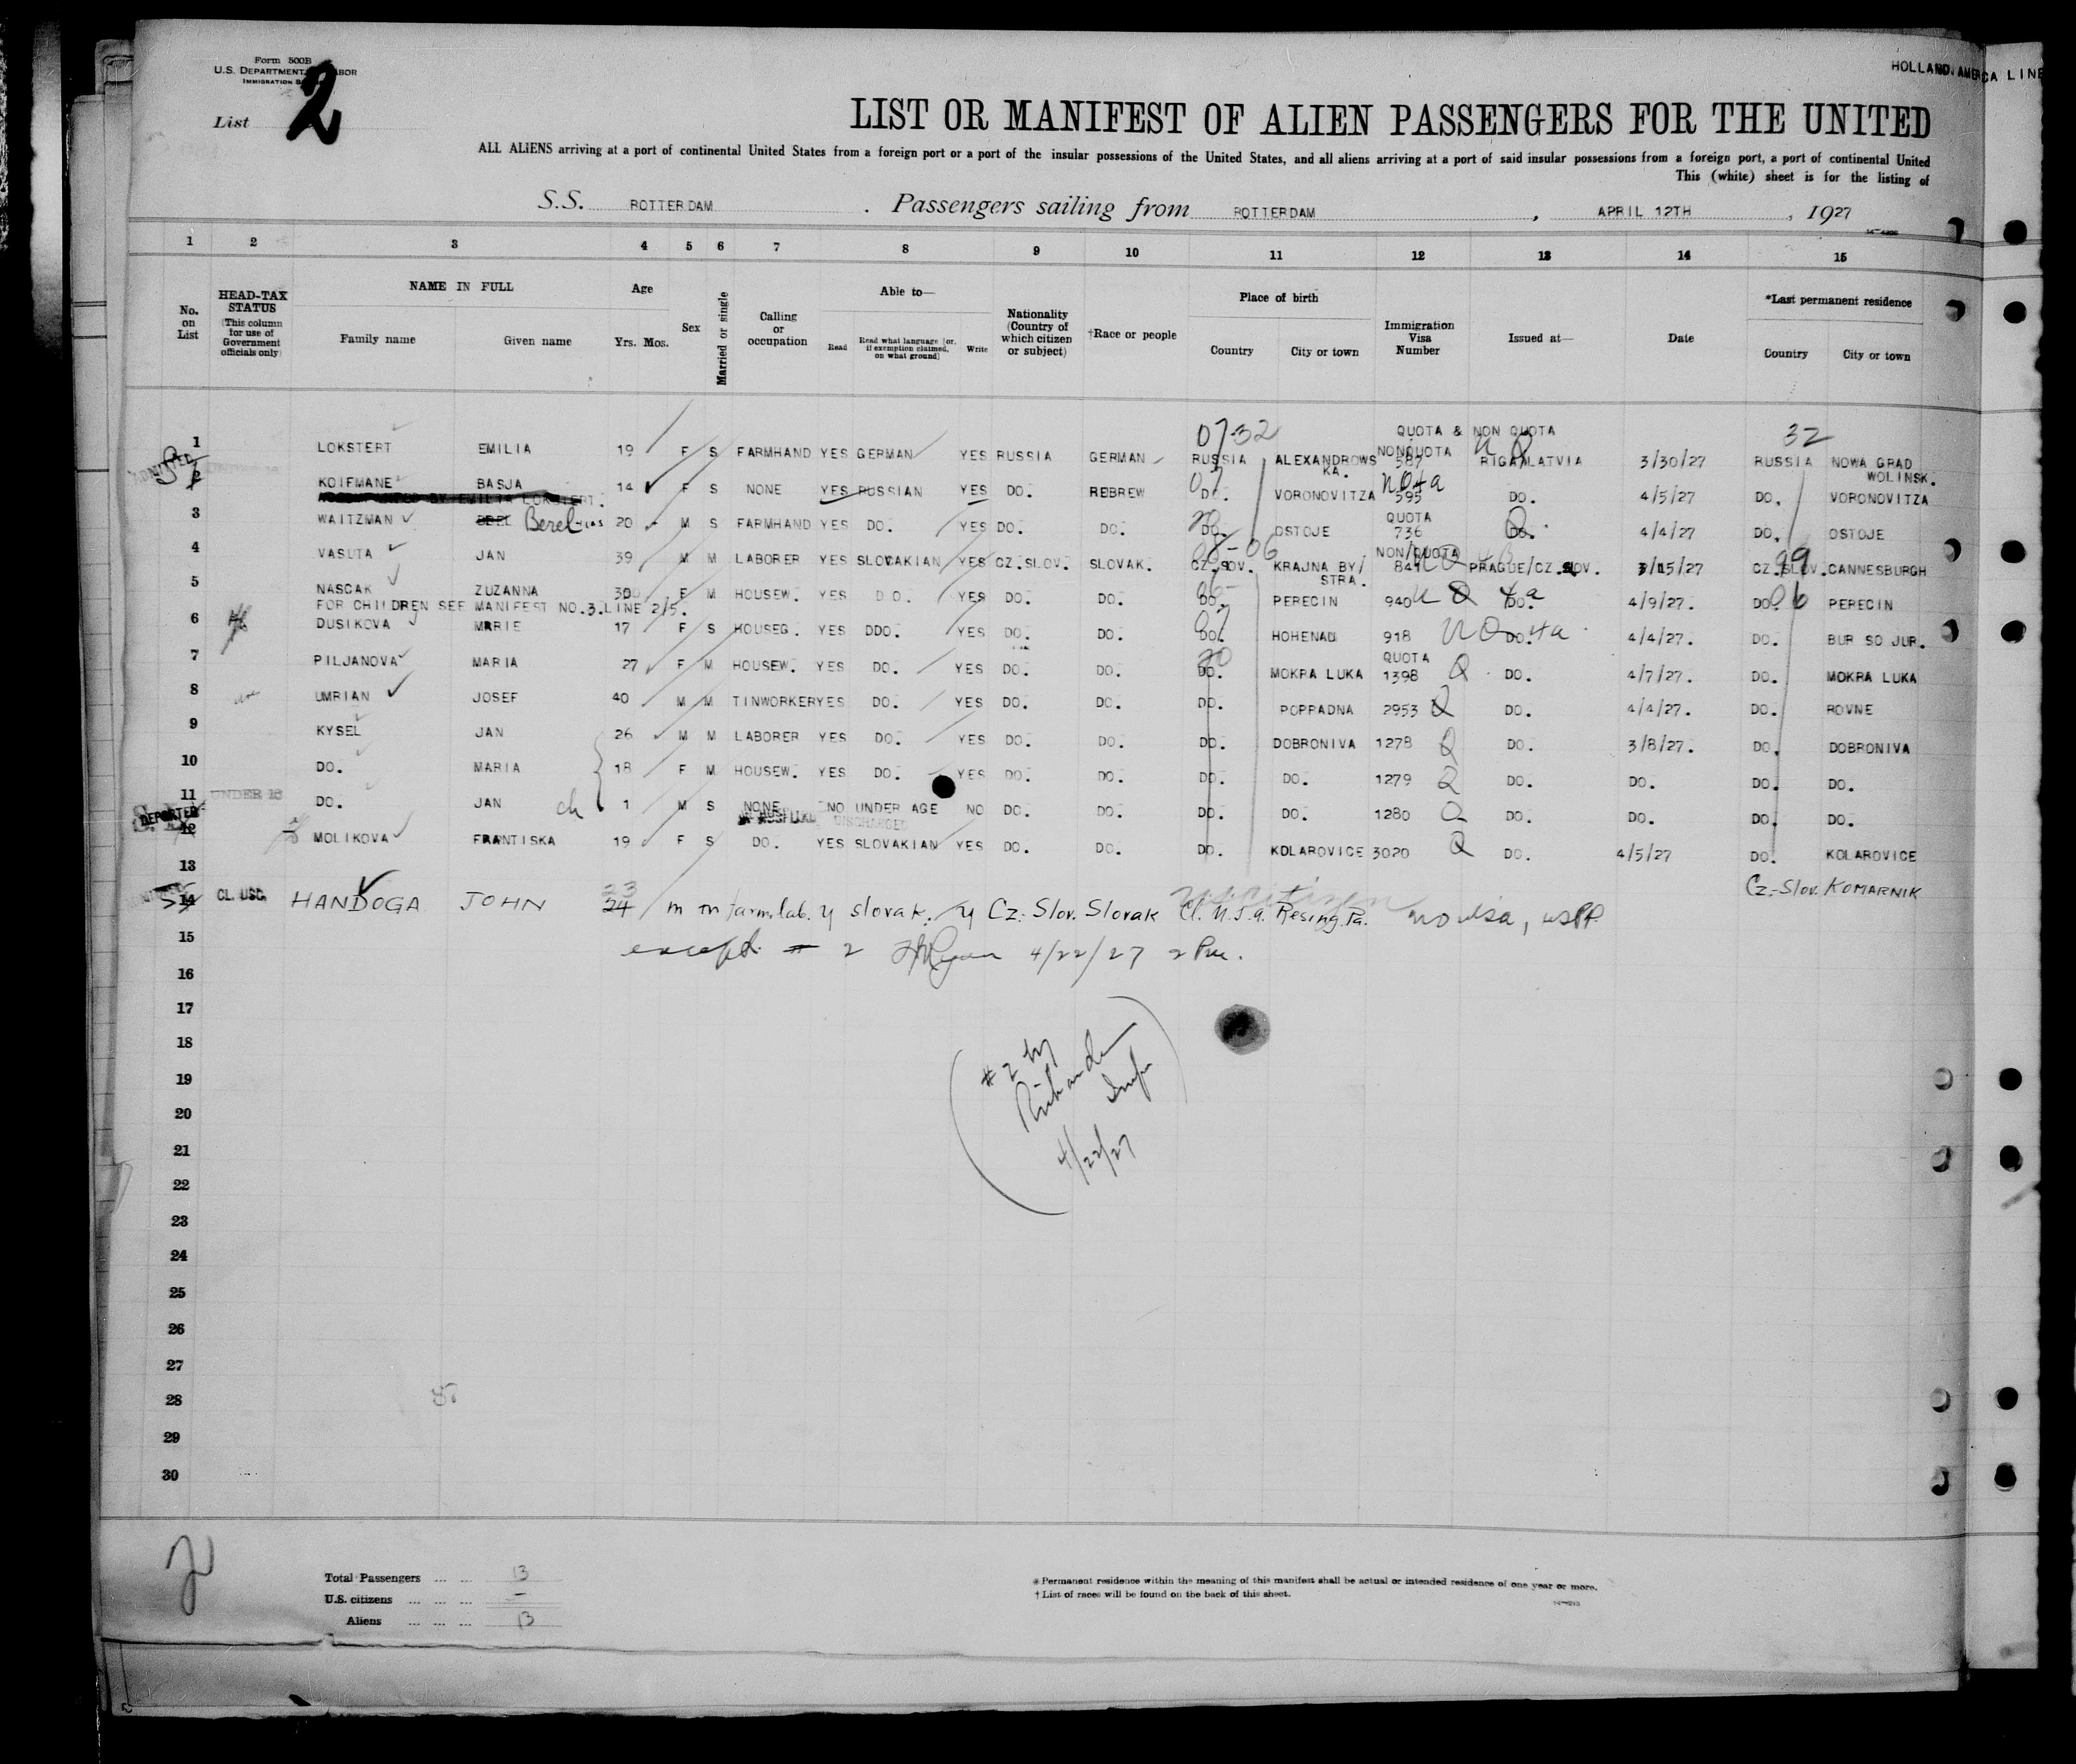 HOLLAND AMERICA LINE
Form 500B
U.S. DEPARTMENT LABOR
IMMIGRATION
List 2
LIST OR MANIFEST OF ALIEN PASSENGERS FOR THE UNITED
ALL ALIENS arriving at a port of continental United States from a foreign port or a port of the insular possessions of the United States, and all aliens arriving at a port of said insular possessions from a foreign port, a port of continental United
This (white) sheet is for the listing of
S.S. ROTTERDAM . Passengers sailing from ROTTERDAM , APRIL 12TH , 1927
1 2 3 4 5 6 7 8 9 10 11 12 13 14 15
No. on List HEAD-TAX STATUS (This column for use of Government officials only) NAME IN FULL Family name Given name Age Yrs. Mos. Sex Married or single Calling or occupation Able to— Read Read what language [or, if exemption claimed, on what ground] Write Nationality (Country of which citizen or subject) †Race or people Place of birth Country City or town Immigration Visa Number Issued at— Date *Last permanent residence Country City or town
07-32 QUOTA & NON QUOTA 32
1 LOKSTERT EMILIA 19 F S FARMHAND YES GERMAN YES RUSSIA GERMAN RUSSIA ALEXANDROWSKA. NONQUOTA 587 RIGA/LATVIA 3/30/27 RUSSIA NOWA GRAD WOLINSK.
2 KOIFMANE BASJA 14 F S NONE YES RUSSIAN YES DO. HEBREW DO. VORONOVITZA 595 DO. 4/5/27 DO. VORONOVITZA
3 WAITZMAN Berel 20 M S FARMHAND YES DO. YES DO. DO. DO. OSTOJE QUOTA 736 DO. 4/4/27 DO. OSTOJE
4 VASUTA JAN 39 M M LABORER YES SLOVAKIAN YES CZ.SLOV. SLOVAK. CZ.SLOV. KRAJNA BY/STRA. NON/QUOTA 841 PRAGUE/CZ.SLOV. 3/15/27 CZ.SLOV. CANNESBURGH
5 NASCAK ZUZANNA 30 F M HOUSEW. YES DO. YES DO. DO. DO. PERECIN 940 DO. 4/9/27. DO. PERECIN
FOR CHILDREN SEE MANIFEST NO.3.LINE 2/5.
6 DUSIKOVA MARIE 17 F S HOUSEG. YES DDO. YES DO. DO. DO. HOHENAU 918 NQ 4a DO. 4/4/27. DO. BUR SO JUR.
7 PILJANOVA MARIA 27 F M HOUSEW. YES DO. YES DO. DO. DO. MOKRA LUKA QUOTA 1398 Q DO. 4/7/27. DO. MOKRA LUKA
8 UMRIAN JOSEF 40 M M TINWORKER YES DO. YES DO. DO. DO. POPRADNA 2953 Q DO. 4/4/27. DO. ROVNE
9 KYSEL JAN 26 M M LABORER YES DO. YES DO. DO. DO. DOBRONIVA 1278 Q DO. 3/8/27. DO. DOBRONIVA
10 DO. MARIA 18 F M HOUSEW. YES DO. YES DO. DO. DO. DO. 1279 Q DO. DO. DO. DO.
11 UNDER 16 DO. JAN ch 1 M S NONE NO UNDER AGE NO DO. DO. DO. DO. 1280 Q DO. DO. DO. DO.
DEPORTED IN HOSPITAL DISCHARGED
12 MOLIKOVA FRANTISKA 19 F S DO. YES SLOVAKIAN YES DO. DO. DO. KOLAROVICE 3020 Q DO. 4/5/27 DO. KOLAROVICE
13
14 CL. USC. HANDOGA JOHN 23 24 m m farm.lab. y slovak. y Cz.-Slov. Slovak Cl. U.S.A. Pa. no visa, USPP Cz.-Slov. KOMARNIK
15 except # 2 4/22/27 2 Pm.
16
17
18
19
20
21
22
23
24
25
26
27
28
29
30
# 2 by
Insp
4/22/27
2
Total Passengers 13
U.S. citizens —
Aliens 13
*Permanent residence within the meaning of this manifest shall be actual or intended residence of one year or more.
†List of races will be found on the back of this sheet.